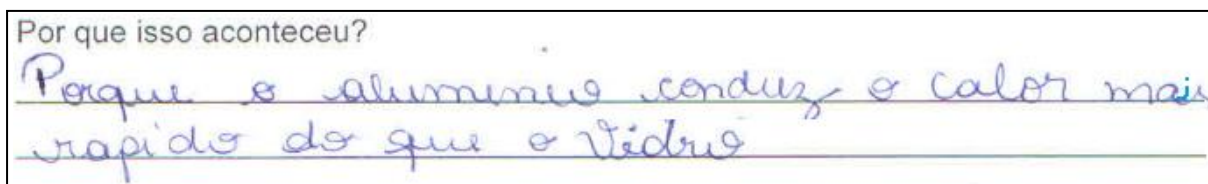 Por que isso aconteceu?
Porque o alumineo conduz o calor mais
rapido do que o Vidro